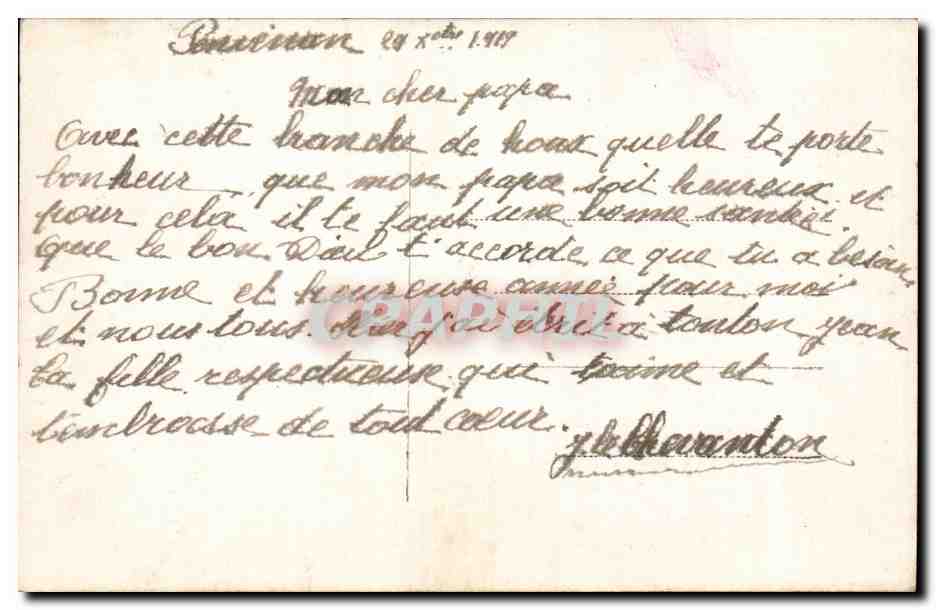 29 Xbre 1919
Mon cher papa
Avec cette branche de houx quelle te porte
bonheur, que mon papa soit heureux et
pour celà il te faut une bonne santée.
Que le bon Dieu t'accorde ce que tu a besoin
Bonne et heureuse année pour moi
et nous tous hier j'ai écrit à tonton Jean
ta fille respectueuse qui t'aime et
t'embrasse de tout cœur.
CPAPHIL